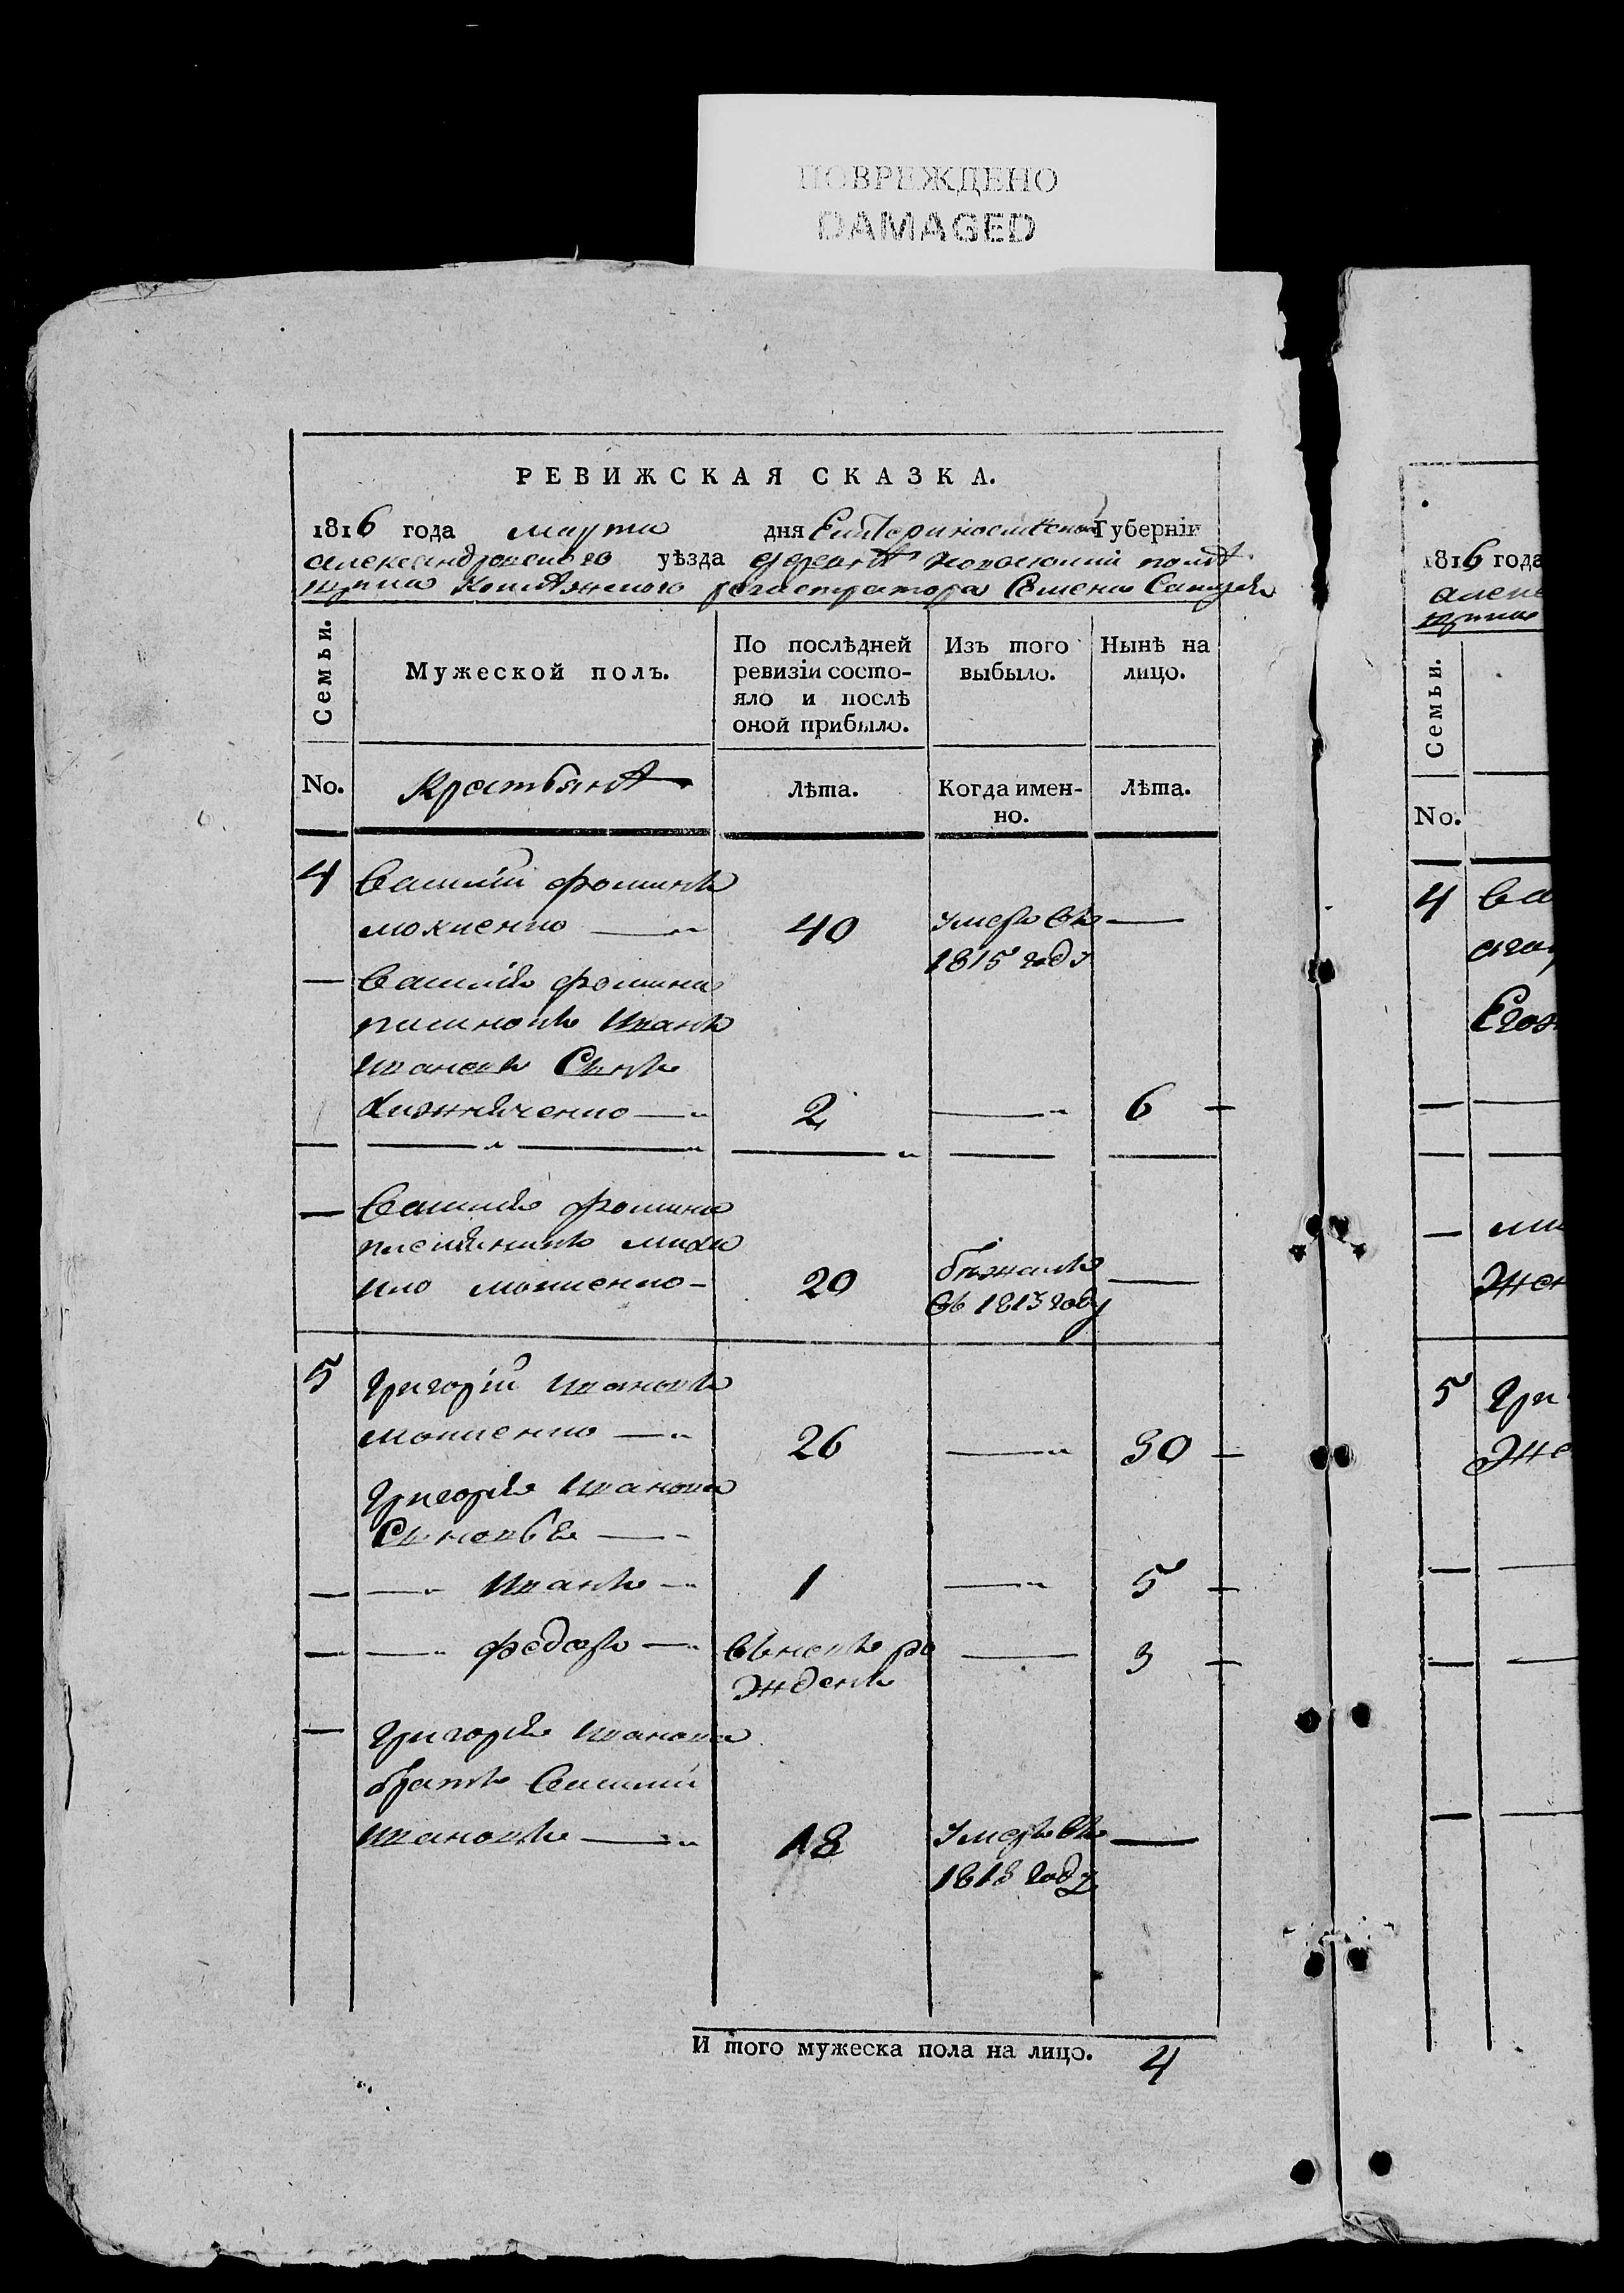 ПОВРЕЖДЕНО
DAMAGED
РЕВИЖСКАЯ СКАЗКА.
1816 года марта дня Екатеринославской Губерніи
александровского уѣзда деревнѣ помѣ
щика Колѣжского регистратора Семена
Семьи.
Мужеской полъ.
По послѣдней ревизіи состо-
яло и послѣ
оной прибыло.
Изъ того выбыло.
Нынѣ на лицо.
No.
Крестьянѣ
Лѣта.
Когда имен-
но.
Лѣта.
4 Василий фоминъ
мокиенко 40 умеръ въ
1815 году
Василія фомина
пасинокъ Иванъ
Ивановъ Сынъ
2 6
Василія фомина
племяникъ михаи
ило мокиенко 20 бѣжалъ
въ 1813 году
5 Григорій Ивановъ
мокиенко 26 30
Григорія Иванова
Сыновья
Иванъ 1 5
федоръ вьновъ ро 3
жденъ
Григорія Иванова
братъ Василий
Ивановъ 18 Умеръ въ
1813 году
И того мужеска пола на лицо. 4
1816 года
алек
щика
Семьи.
No.
4 Ва
Егож
Жен
5 Гри
Же